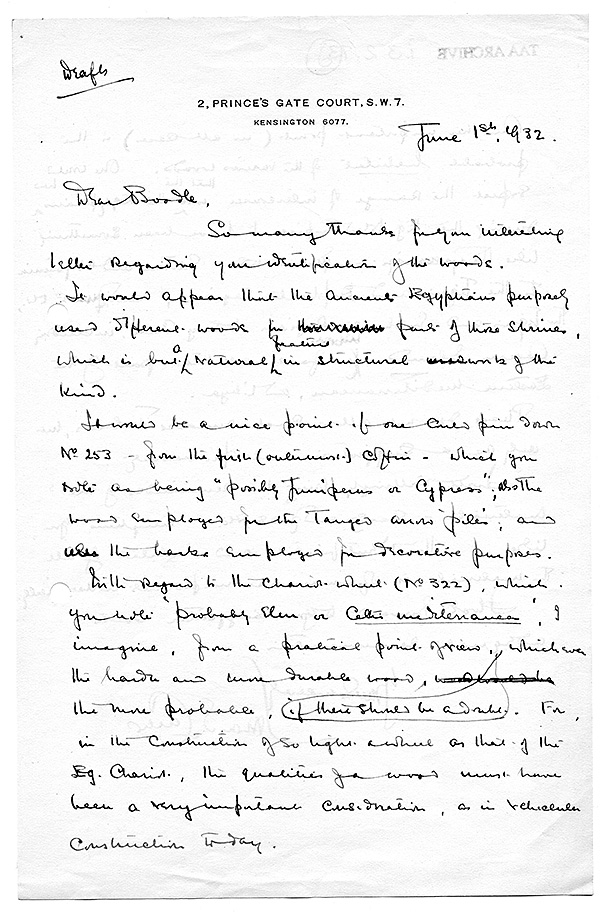 TAA ARCHIVE
Draft
2, PRINCE'S GATE COURT, S.W.7.
KENSINGTON 6077.
June 1st, 1932.
Dear Boodle,
So many thanks for your interesting
letter regarding your identification of the woods.
It would appear that the Ancient Egyptians purposely
used different woods for parts of those shrines,
which is but a natural feature in structural work of the
kind.
It would be a nice point if one could pin down
No 253 - from the first (outermost) coffin - which you
note as being "possibly Juniperus or Cypress"; also the
wood employed for the tanged arrow 'piles'; and
the barks employed for decorative purposes.
With regard to the chariot-wheel (No 322), which
you note "probably Elm or Celtis mediterranea", I
imagine, from a practical point of view, whichever
the harder and more durable wood,
the more probable, if there should be a doubt. For,
in the construction of so light a wheel as that of the
Eg. Chariot, the qualities of a wood must have
been a very important consideration, as in vehicular
construction to-day.